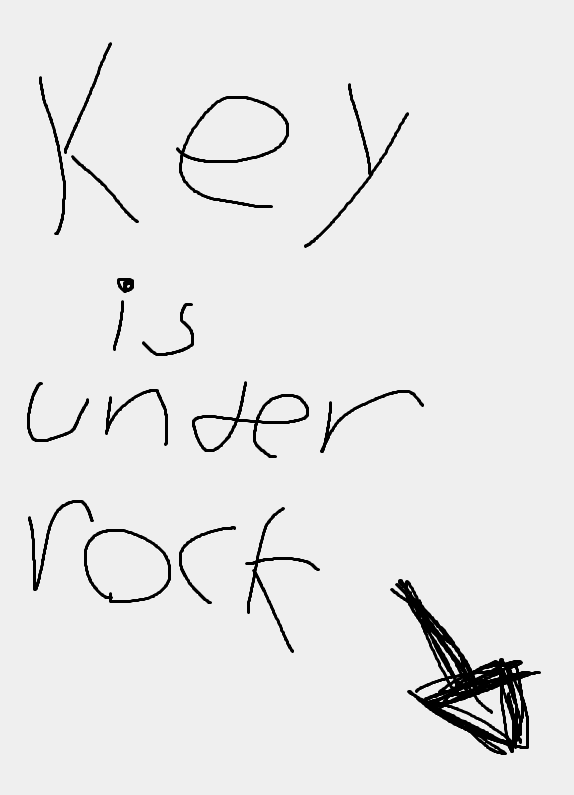 Key
is
under
rock